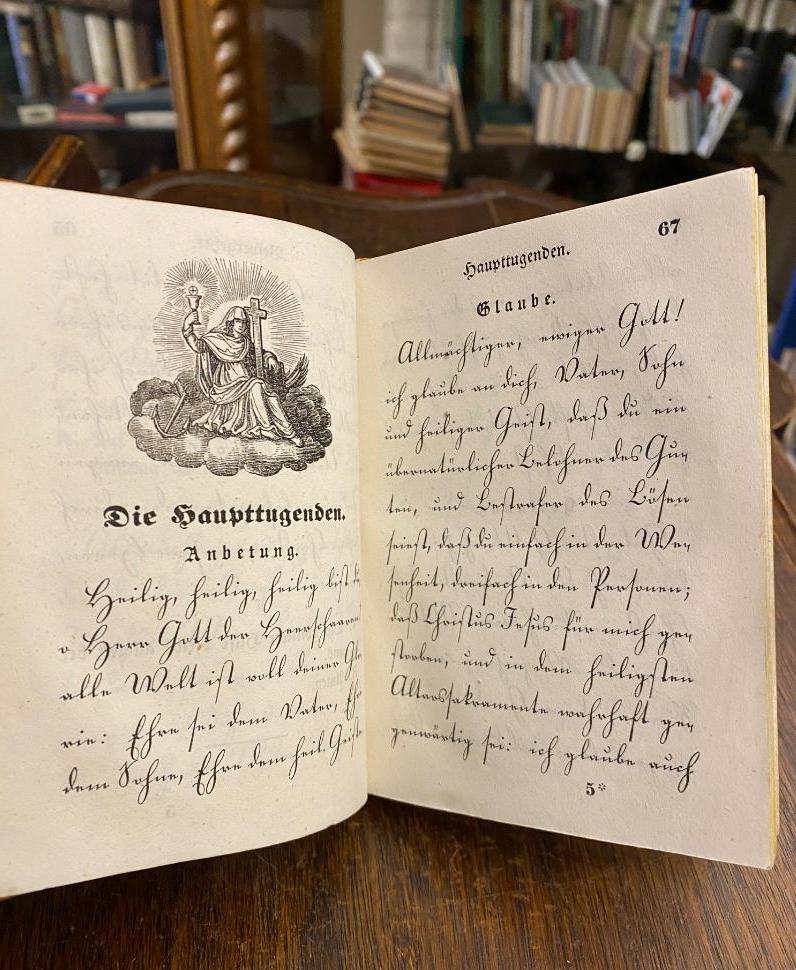 Die Haupttugenden.
Anbetung.
Heilig, heilig, heilig bist
o Herr Gott der Heerschaaren
alle Welt ist voll deiner Glo
rie: Ehre sei dem Vater, Ehre
dem Sohne, Ehre dem heil. Geiste
67
Haupttugenden.
Glaube.
Allmächtiger, ewiger Gott!
ich glaube an dich, Vater, Sohn
und heiliger Geist, daß du ein
übernatürlicher Belohner des Gu-
ten, und Bestrafer des Bösen
seiest, daß du einfach in der We-
senheit, dreifach in den Personen;
daß Christus Jesus für mich ge-
storben, und in dem heiligsten
Altarssakramente wahrhaft ge-
genwärtig sei: ich glaube auch
5*